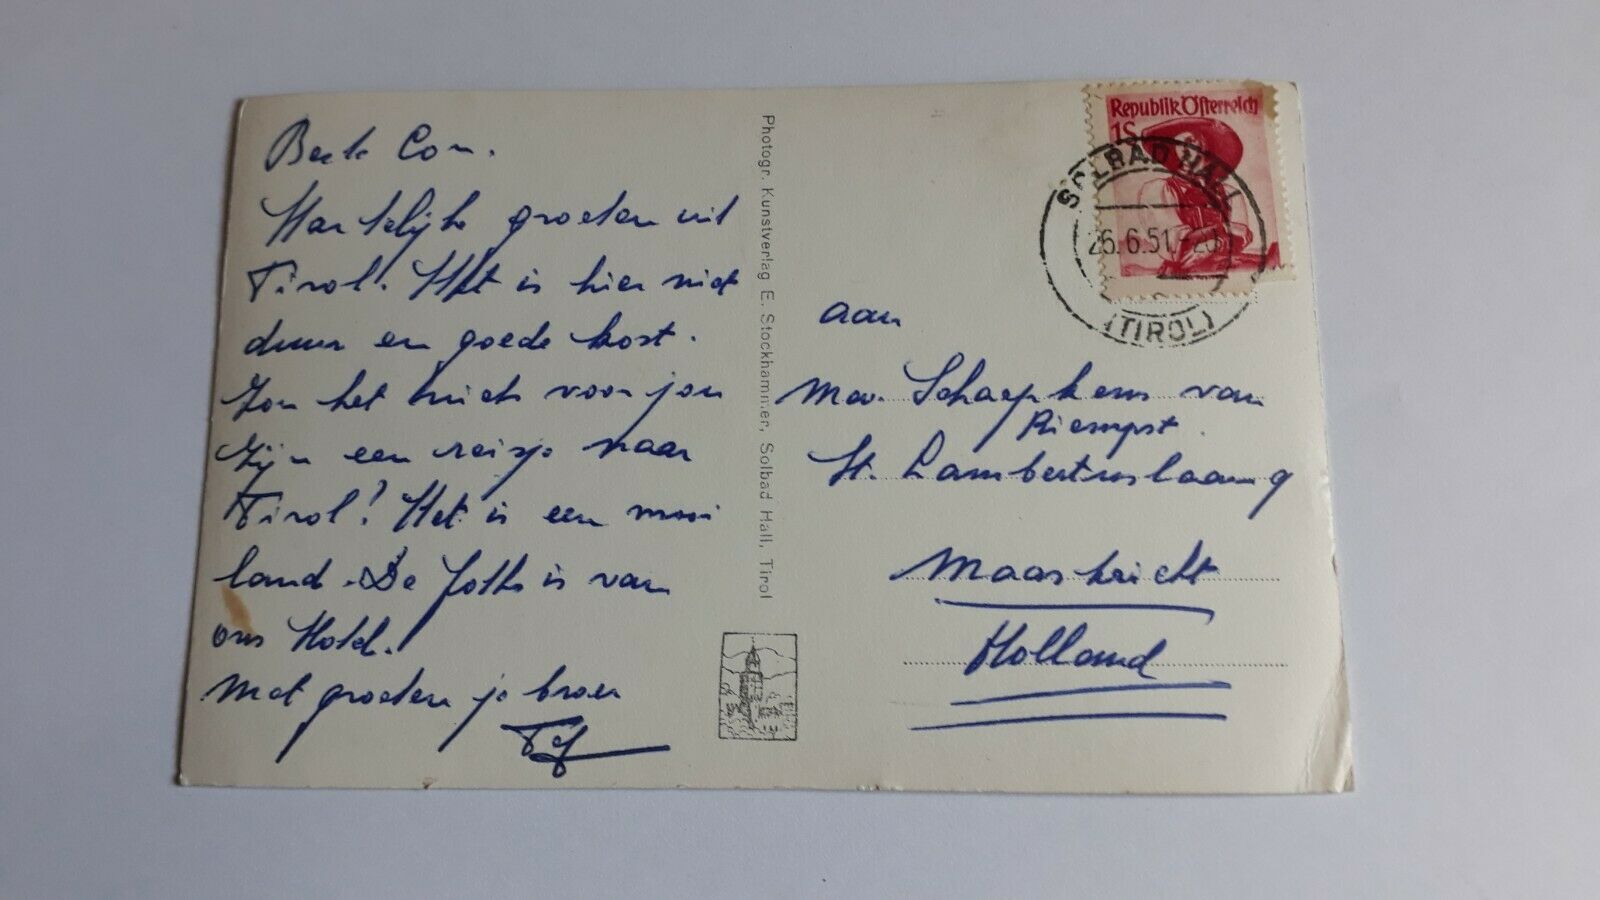 Con.
Hartelijke groeten uit
Tirol. Het is hier niet
duur en goede kost.
Zou het niets voor jou
Zijn een reisje naar
Tirol? Het is een mooi
land. De foto is van
ons Hotel.
Met groeten je broer
Photogr. Kunstverlag E. Stockhammer, Solbad Hall, Tirol
Republik Österreich
1S
SOLBAD HALL
26.6.51.-20
(TIROL)
aan
Mev. Schaepkens van
Riempst.
St. Lambertuslaan 9
Maastricht
Holland